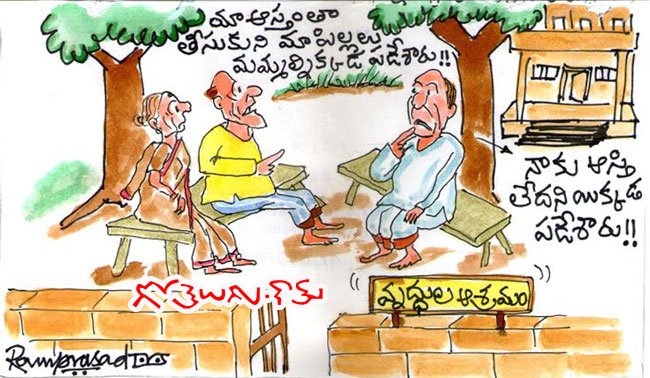 మా ఆస్తంతా
తీసుకుని మా పిల్లలు
మమ్మల్నిక్కడ పడేశారు!!
నాకు ఆస్తి
లేదని యిక్కడ
పడేశారు!!
గోతెలుగు.కామ్
వృద్ధుల ఆశ్రమం
Ramprasad